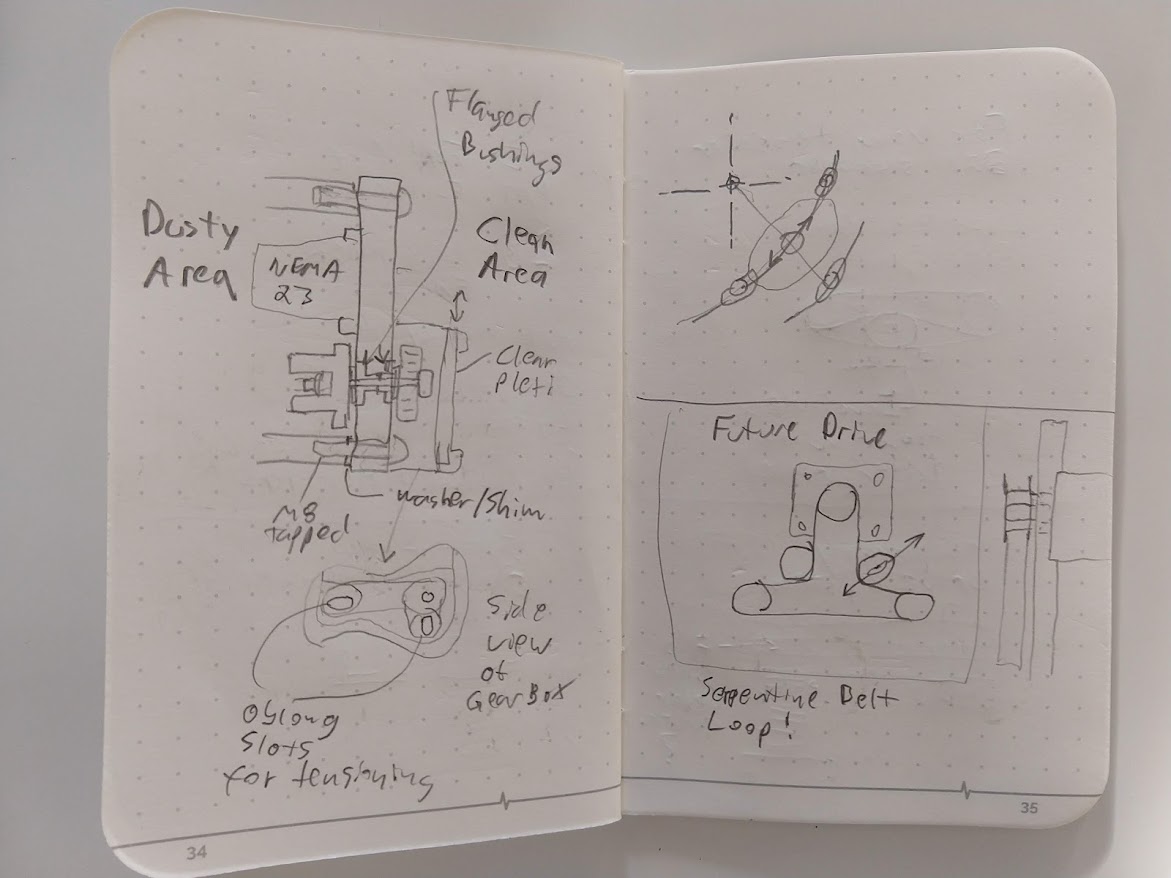 Flanged
Bushings
Dusty
Area
Clean
Area
NEMA
23
Clear
Pleti
washer/Shim
M8
tapped
Side
view
of
GearBox
Oblong
Slots
for tensioning
34
Future Drive
Serpentine Belt
Loop!
35